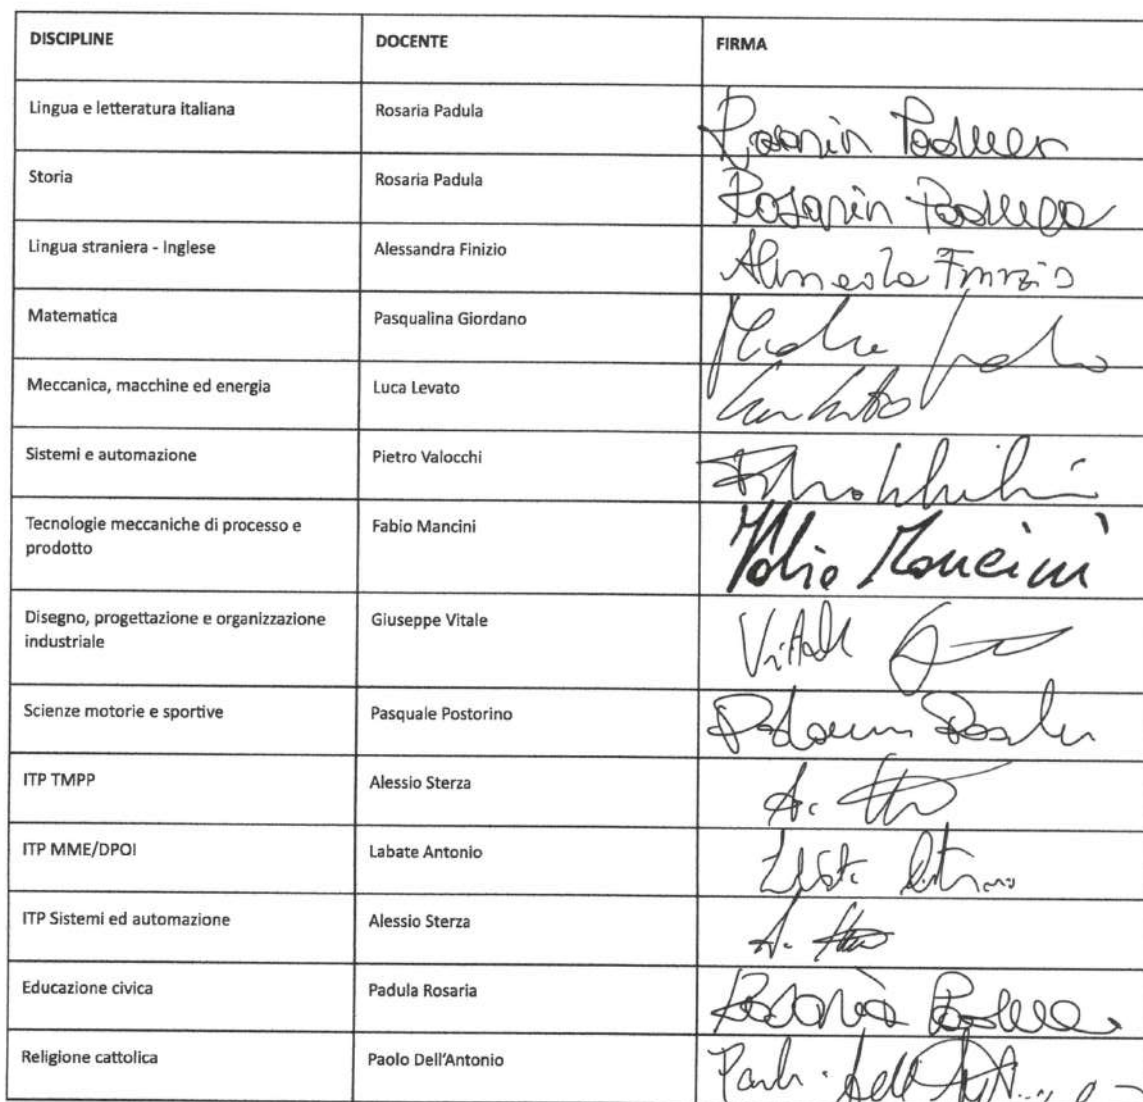 DISCIPLINE DOCENTE FIRMA
Lingua e letteratura italiana Rosaria Padula Rosaria Padula
Storia Rosaria Padula Rosaria Padula
Lingua straniera - Inglese Alessandra Finizio Alessandra Finizio
Matematica Pasqualina Giordano
Meccanica, macchine ed energia Luca Levato
Sistemi e automazione Pietro Valocchi
Tecnologie meccaniche di processo e
prodotto Fabio Mancini Fabio Mancini
Disegno, progettazione e organizzazione
industriale Giuseppe Vitale Vitale
Scienze motorie e sportive Pasquale Postorino
ITP TMPP Alessio Sterza A.
ITP MME/DPOI Labate Antonio
ITP Sistemi ed automazione Alessio Sterza A.
Educazione civica Padula Rosaria Rosaria Padula
Religione cattolica Paolo Dell'Antonio Paolo Dell'Antonio